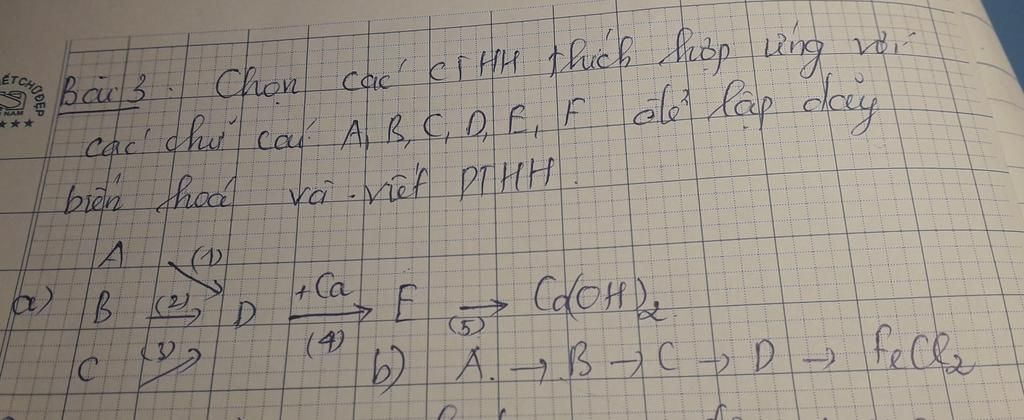 Bài 3. Chọn các CTHH thích hợp ứng với
các chữ cái A, B, C, D, E, F để lập dãy
biến hoá và viết PTHH.
A (1)
a) B (2) D +Ca (4) E (5) Ca(OH)2
C (3)
b) A → B → C → D → FeCl2